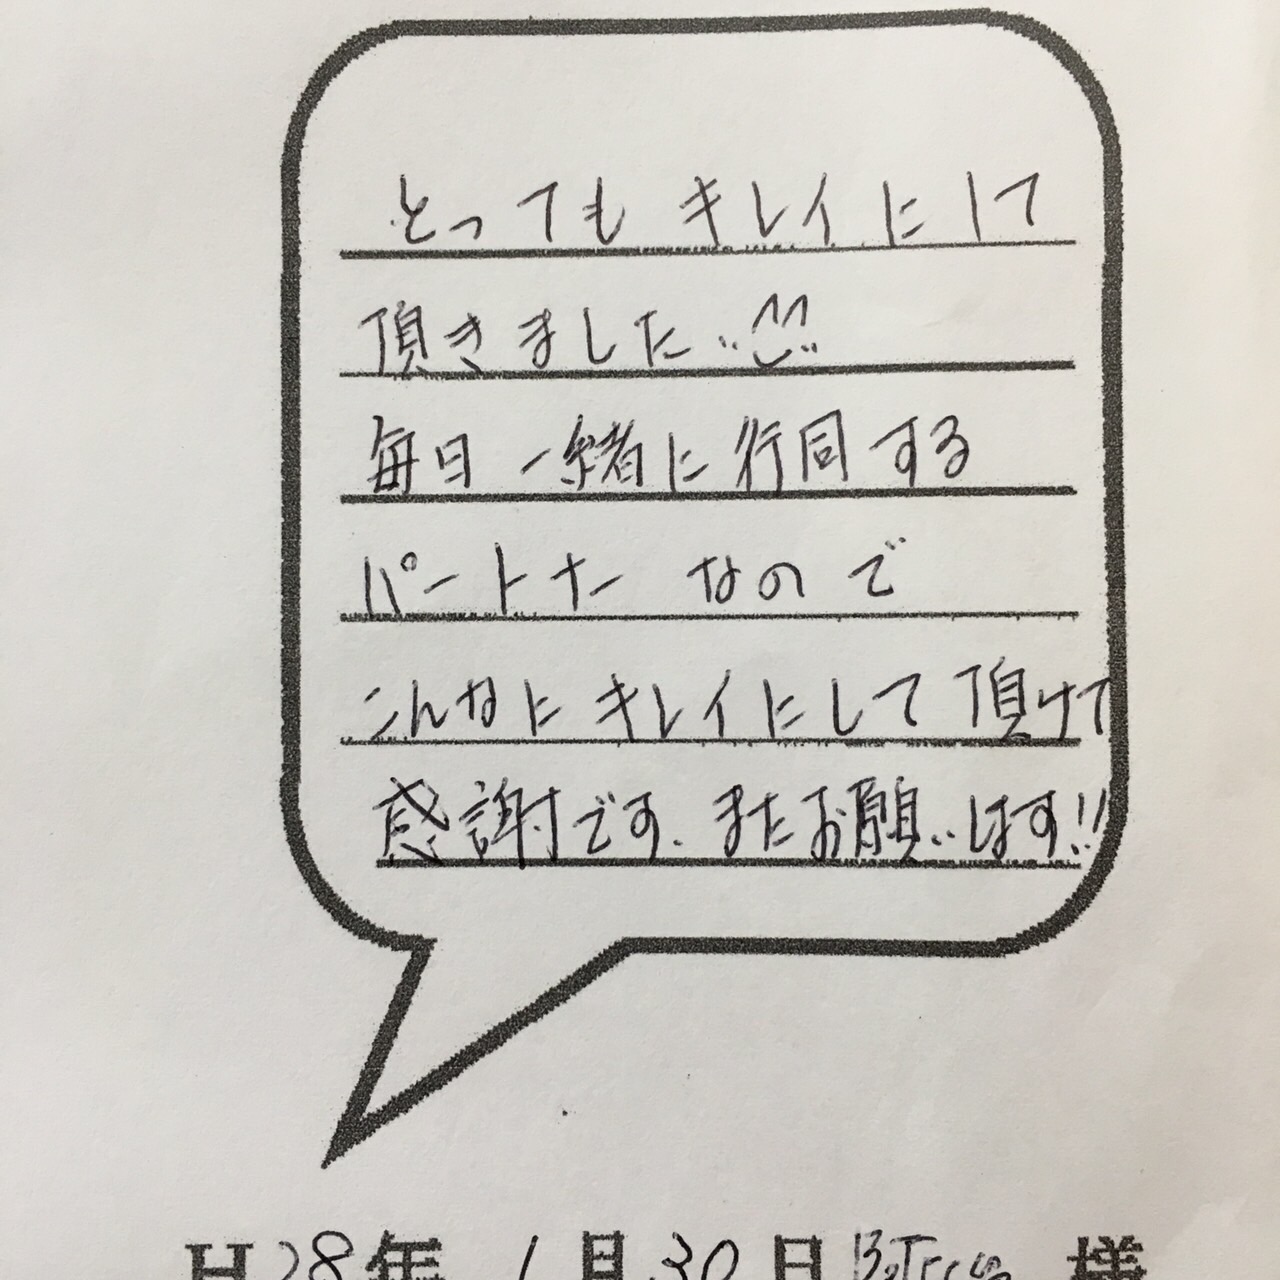 とってもキレイにして
頂きました‥^^‥
毎日一緒に行同する
パートナーなので
こんなにキレイにして頂けて
感謝です.またお願いします!!
H28年 1月30日 様